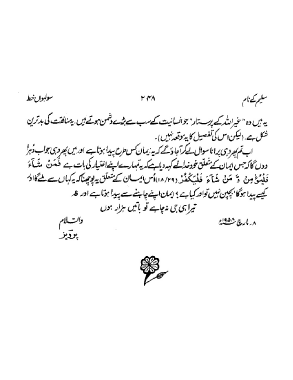 سلیم کے نام ۲۴۸ سولہواں خط
یہ ہیں وہ "غیر اللہ کے پرستار" جو انسانیت کے سب سے بڑے دشمن ہوتے ہیں۔ یہ منافقت کی بدترین
شکل ہے، (لیکن اس کی تفصیل کا یہ موقعہ نہیں)۔
اب تم پھر وہی پرانا سوال لے کر آ جاؤ گے کہ یہ ایمان کس طرح پیدا ہوتا ہے اور میں پھر وہی جواب دُہرا
دوں گا کہ جس ایمان کے متعلق خود خدا نے کہہ دیا ہے کہ یہ تمہارے اپنے اختیار کی بات ہے فَمَنْ شَاءَ
فَلْيُؤْمِنْ وَّ مَنْ شَاءَ فَلْيَكْفُرْ (۱۸/۲۹) اُس ایمان کے متعلق یہ پوچھنا کہ یہ کہاں سے ملے گا اور
کیسے پیدا ہو گا؟ بچپن نہیں تو اور کیا ہے؟ ایمان اپنے چاہنے سے پیدا ہوتا ہے اور
تیرا ہی جی نہ چاہے تو باتیں ہزار ہوں
والسلام
۸۔ مارچ ۱۹۵۸ء
پرویز